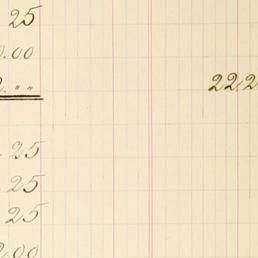 25
.00
22.2
25
25
25
2.00